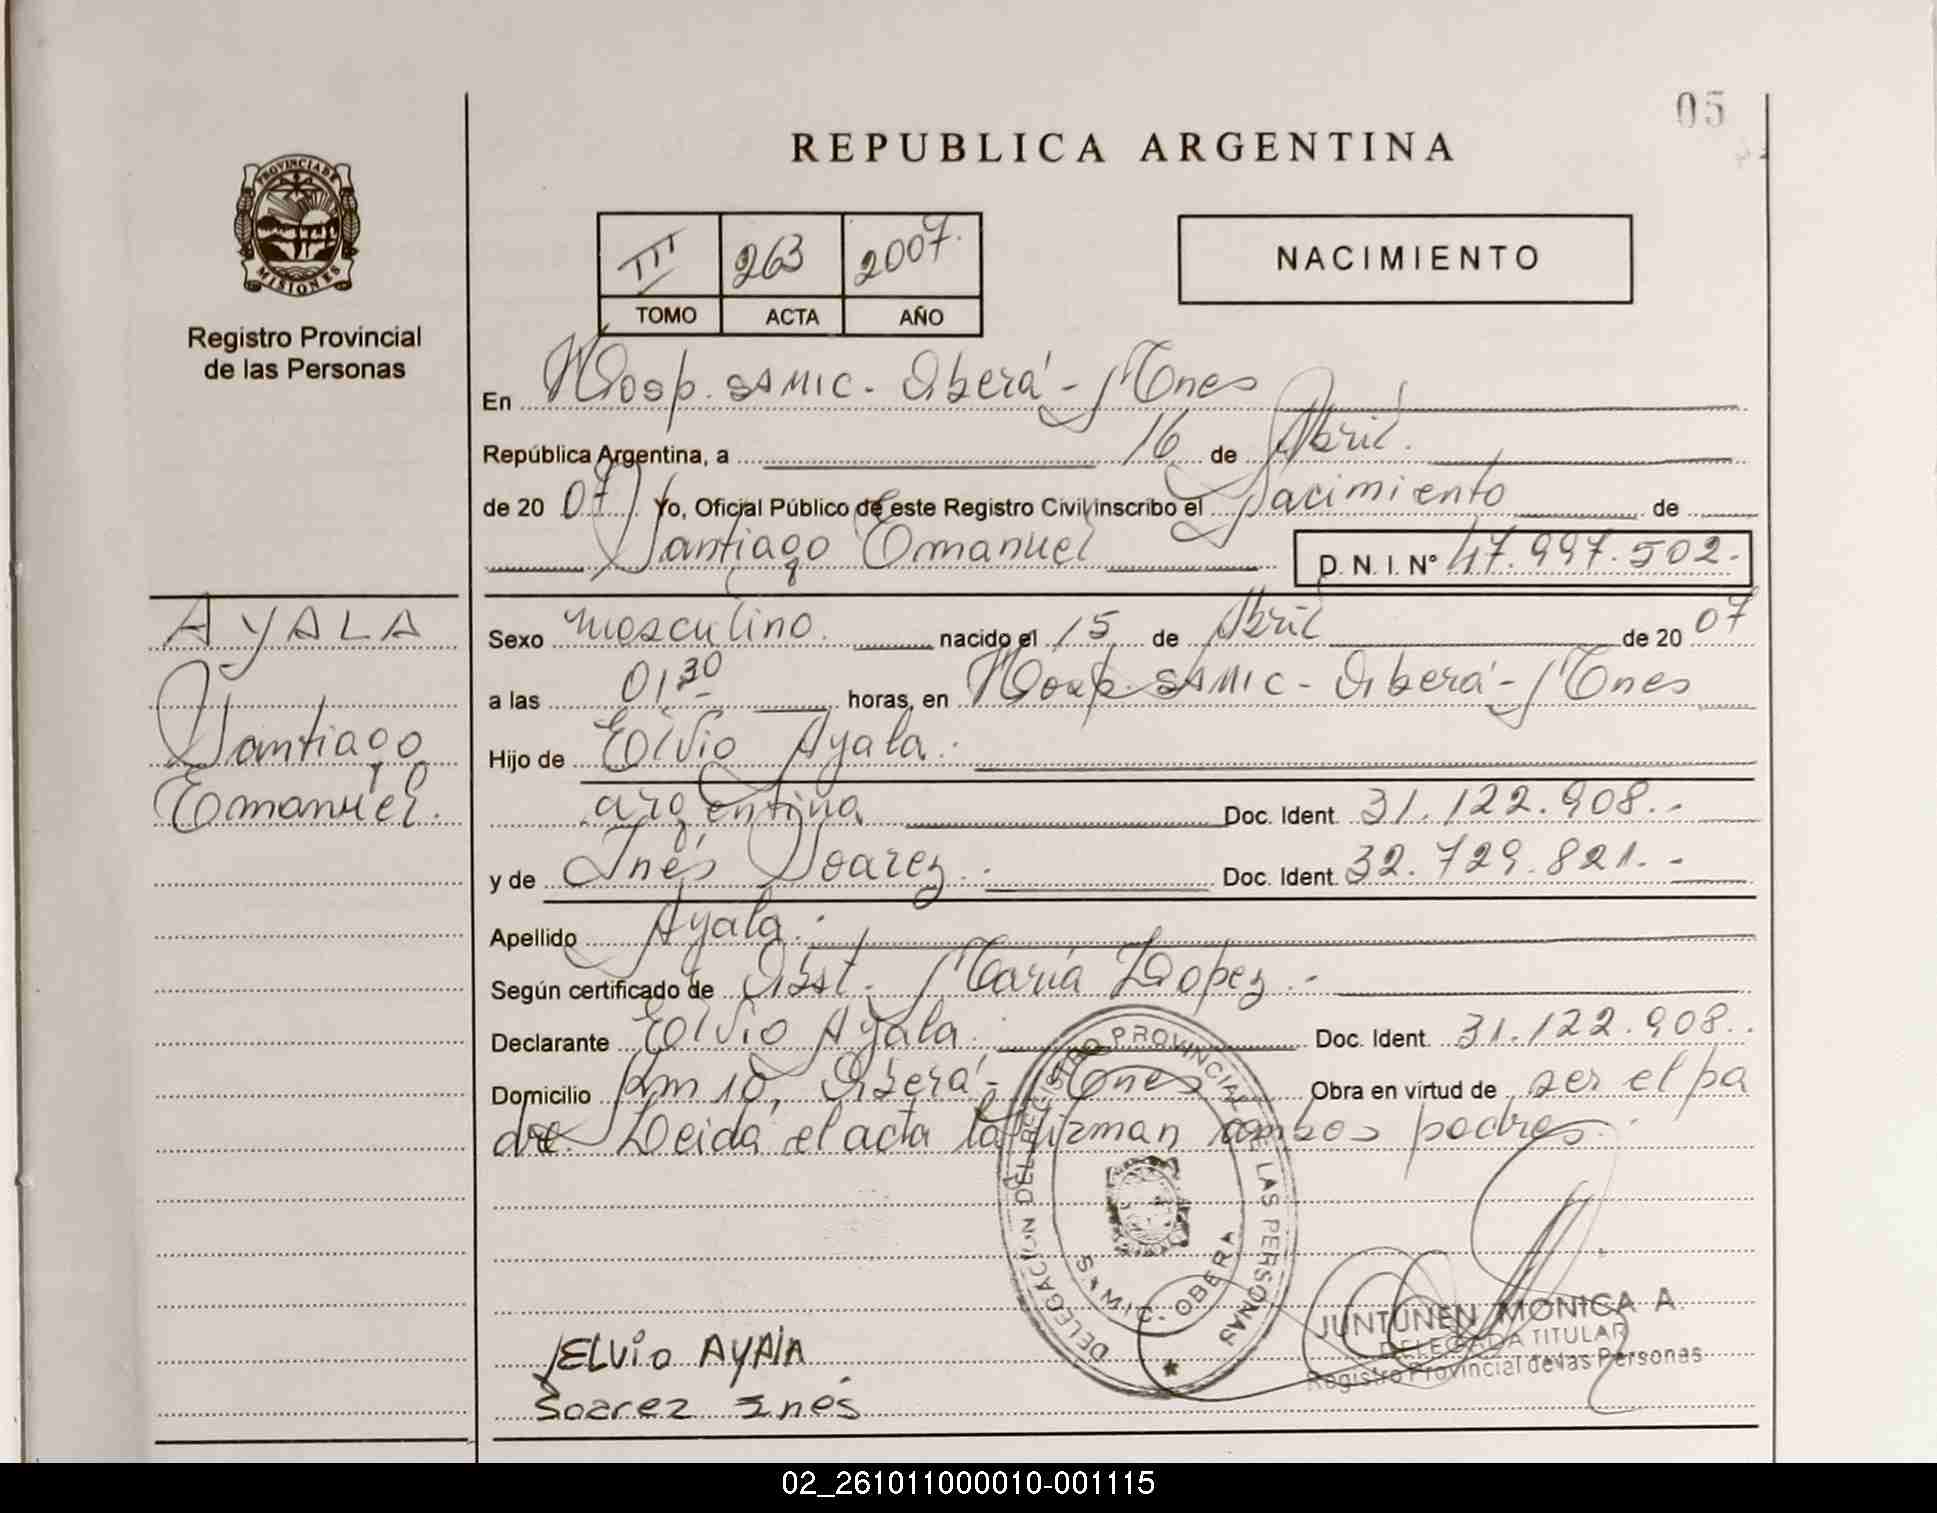 05
REPUBLICA ARGENTINA
PROVINCIA DE
MISIONES
Registro Provincial
de las Personas
III 263 2007.
TOMO ACTA AÑO
NACIMIENTO
En Hosp. SAMIC - Oberá - Mnes
República Argentina, a 16 de Abril.
de 20 07 Yo, Oficial Público de este Registro Civil inscribo el Nacimiento de
Santiago Emanuel D. N. I. Nº 47.997.502.-
AYALA
Santiago
Emanuel.
Sexo masculino. nacido el 15 de Abril de 20 07
a las 01 30 horas, en Hosp. SAMIC - Oberá - Mnes
Hijo de Elvio Ayala.
argentina Doc. Ident. 31.122.908.-
y de Inés Soarez. Doc. Ident. 32.729.821.-
Apellido Ayala.
Según certificado de Obst. María Lopez.-
Declarante Elvio Ayala. Doc. Ident. 31.122.908..
Domicilio Km 10, Oberá - Mnes Obra en virtud de ser el pa
dre. Leida el acta la firman ambos padres.
DELEGACION DEL REGISTRO PROVINCIAL DE LAS PERSONAS
S.A.MIC. OBERA
ELVIO AYALA
Soarez Inés
JUNTUNEN MONICA A.
DELEGADA TITULAR
Registro Provincial de las Personas
02_261011000010-001115